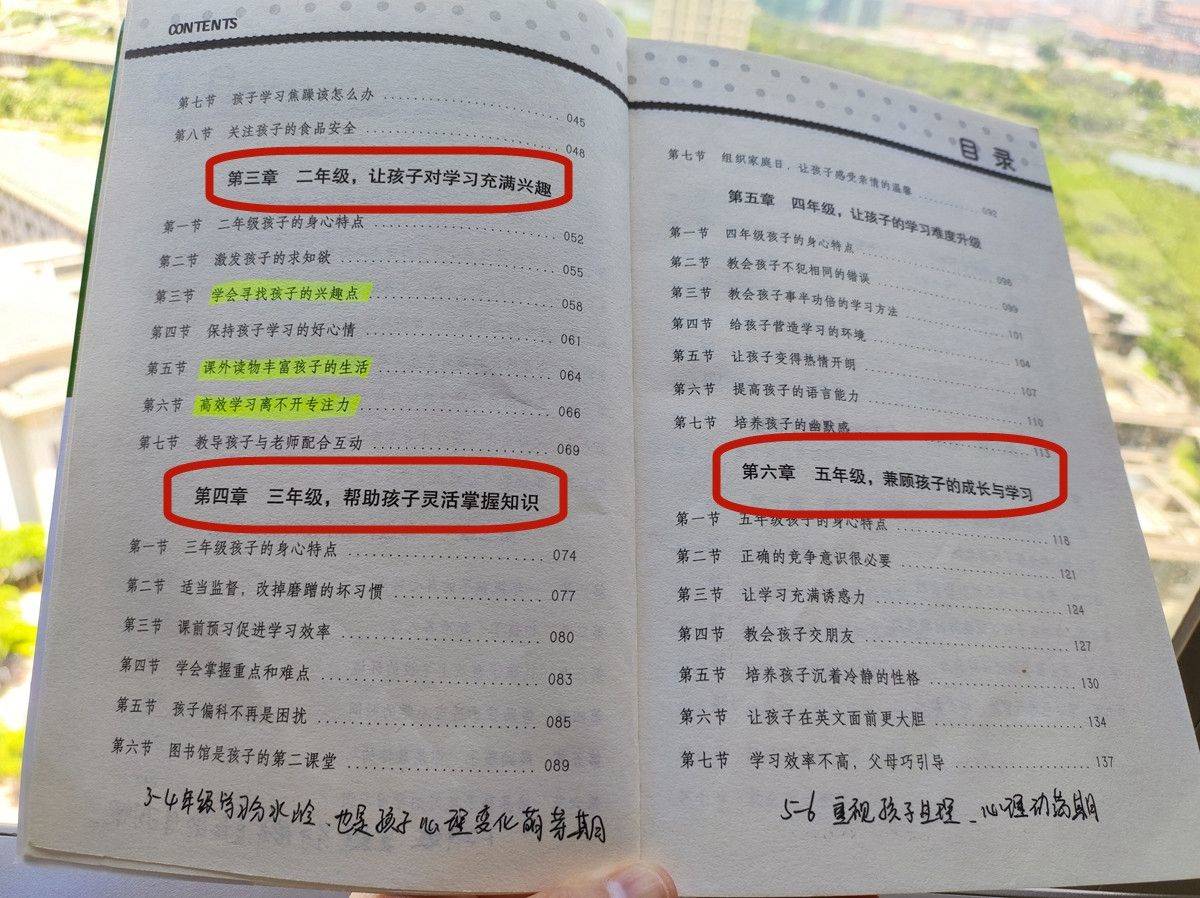 CONTENTS
第七节 孩子学习焦躁该怎么办 045
第八节 关注孩子的食品安全 048
第三章 二年级，让孩子对学习充满兴趣
第一节 二年级孩子的身心特点 052
第二节 激发孩子的求知欲 055
第三节 学会寻找孩子的兴趣点 058
第四节 保持孩子学习的好心情 061
第五节 课外读物丰富孩子的生活 064
第六节 高效学习离不开专注力 066
第七节 教导孩子与老师配合互动 069
第四章 三年级，帮助孩子灵活掌握知识
第一节 三年级孩子的身心特点 074
第二节 适当监督，改掉磨蹭的坏习惯 077
第三节 课前预习促进学习效率 080
第四节 学会掌握重点和难点 083
第五节 孩子偏科不再是困扰 085
第六节 图书馆是孩子的第二课堂 089
3-4年级学习分水岭、也是孩子心理变化萌芽期
目录
第七节 组织家庭日，让孩子感受亲情的温馨 092
第五章 四年级，让孩子的学习难度升级
第一节 四年级孩子的身心特点 096
第二节 教会孩子不犯相同的错误 099
第三节 教会孩子事半功倍的学习方法 101
第四节 给孩子营造学习的环境 104
第五节 让孩子变得热情开朗 107
第六节 提高孩子的语言能力 110
第七节 培养孩子的幽默感 113
第六章 五年级，兼顾孩子的成长与学习
第一节 五年级孩子的身心特点 118
第二节 正确的竞争意识很必要 121
第三节 让学习充满诱惑力 124
第四节 教会孩子交朋友 127
第五节 培养孩子沉着冷静的性格 130
第六节 让孩子在英文面前更大胆 134
第七节 学习效率不高，父母巧引导 137
5-6 重视孩子生理、心理动荡期